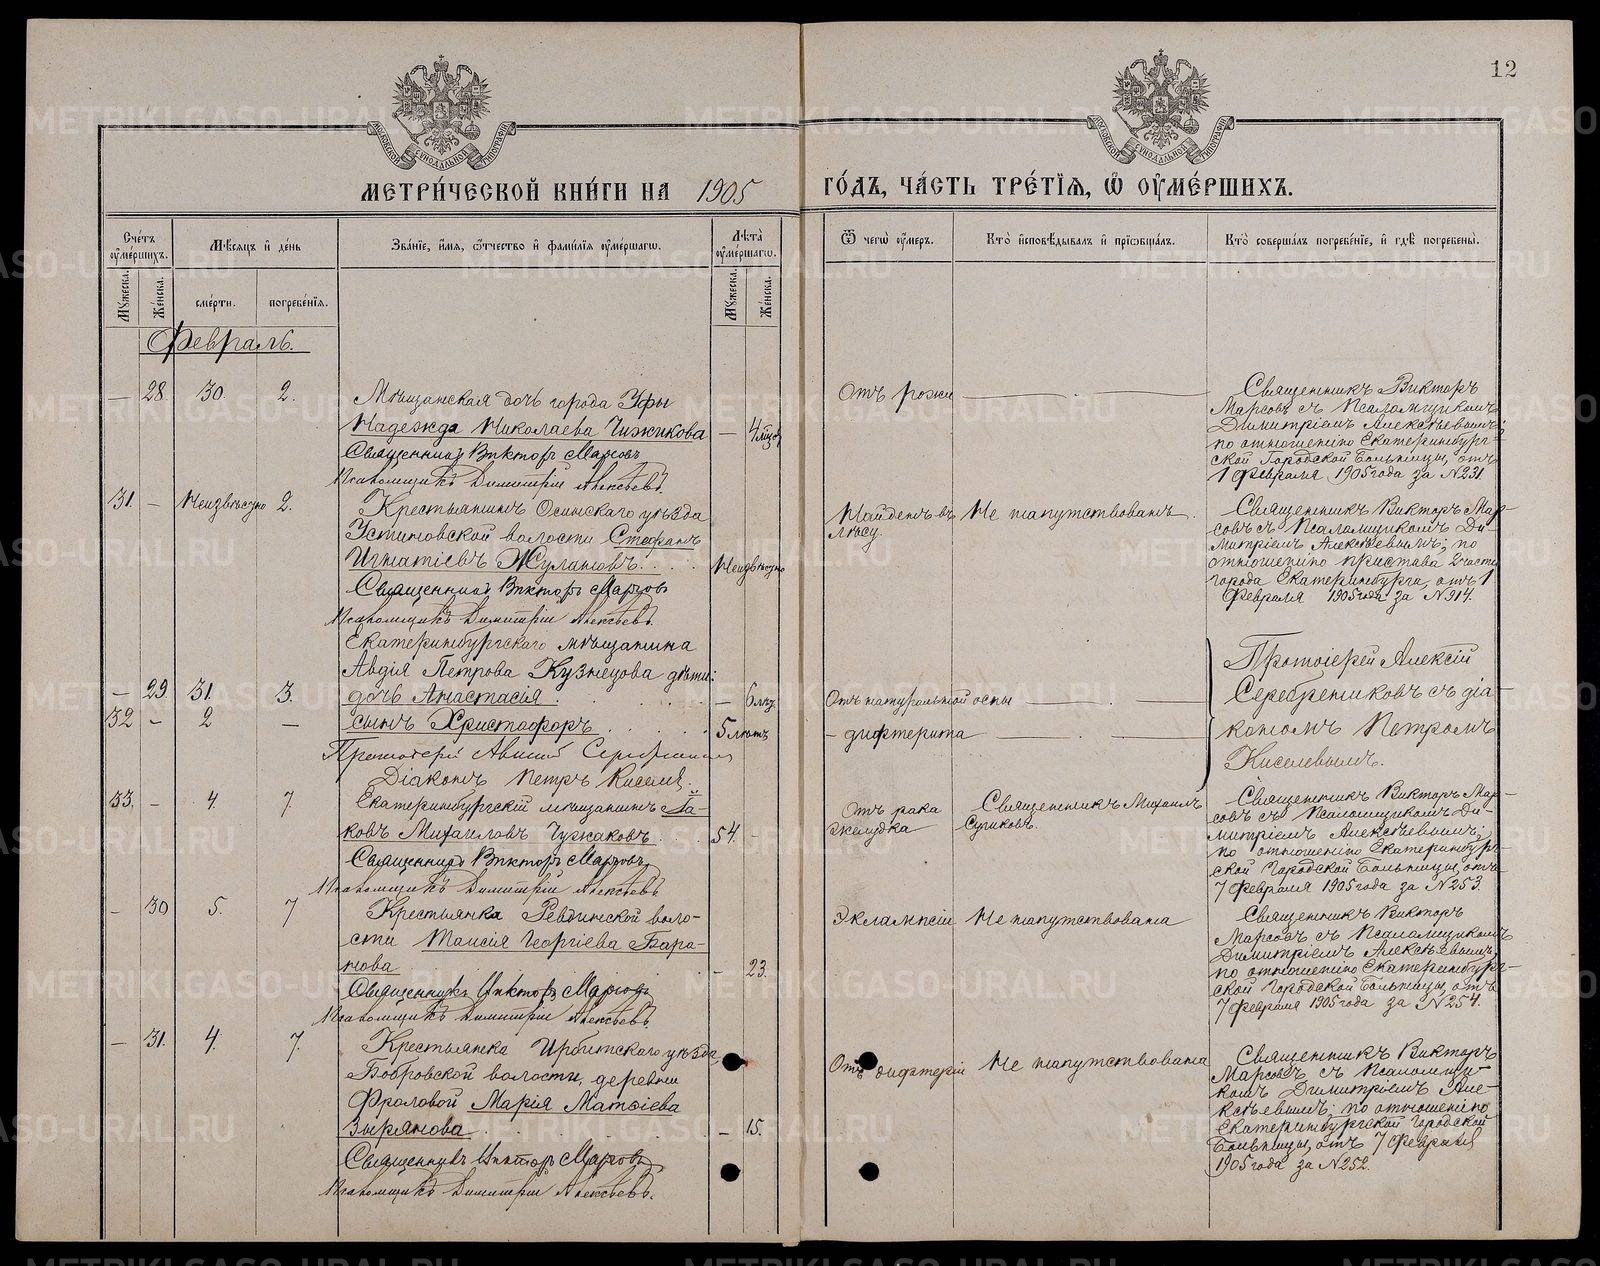 12
МОСКОВСКОЙ СѴНОДАЛЬНОЙ ТИПОГРАФІИ
МОСКОВСКОЙ СѴНОДАЛЬНОЙ ТИПОГРАФІИ
МЕТРИ́ЧЕСКОЙ КНИ́ГИ НА 1905 ГО́ДЪ, ЧА́СТЬ ТРЕ́ТІѦ, Ѡ҆ ОУ҆МЕ́РШИХЪ.
Сче́тъ оу҆ме́ршихъ.
Мѣ́сѧцъ и҆ де́нь
Зва́нїе, и҆́мѧ, ѻ҆́тчество и҆ фами́лїѧ оу҆ме́ршагѡ.
Лѣта̀ оу҆ме́ршагѡ.
Ѿ чегѡ̀ оу҆́меръ.
Кто̀ и҆сповѣ́дывалъ и҆ прїѡбща́лъ.
Кто̀ соверша́лъ погребе́нїе, и҆ гдѣ̀ погребены̀.
Мꙋ́жеска.
Же́нска.
сме́рти.
погребе́нїѧ.
Мꙋ́жеска.
Же́нска.
Февраль.
— 28. 30. 2.
Мѣщанская дочь города Уфы
Надежда Николаева Чижикова — 4 мѣсяц
Священникъ Викторъ Марсовъ
Псаломщикъ Димитрій Алексѣевъ.
Отъ рожи
Священникъ Викторъ
Марсовъ съ Псаломщикомъ
Димитріемъ Алексѣевымъ;
по отношенію Екатеринбург-
ской Городской Больницы, отъ
1 Февраля 1905 года за № 231.
31. — Неизвѣстно 2.
Крестьянинъ Осинскаго уѣзда
Устиновской волости Стефанъ
Игнатіевъ Жулановъ. Неизвѣстно
Священникъ Викторъ Марсовъ
Псаломщикъ Димитрій Алексѣевъ.
Найденъ въ
лѣсу.
Не напутствованъ.
Священникъ Викторъ Мар-
совъ съ Псаломщикомъ Ди-
митріемъ Алексѣевымъ; по
отношенію пристава 2 части
города Екатеринбурга, отъ 1
Февраля 1905 года за № 914.
Екатеринбургскаго мѣщанина
Авдія Петрова Кузнецова дѣти:
— 29 31. 3. дочь Анастасія — 6 лѣтъ
32 — 2 — сынъ Христофоръ 5 лѣтъ
Протоіерей Алексій Серебренников
Діаконъ Петръ Киселев.
Отъ натуральной оспы
— дифтерита
Протоіерей Алексій
Серебренниковъ съ діа-
кономъ Петромъ
Киселевымъ.
33. — 4. 7.
Екатеринбургскій мѣщанинъ Іа-
ковъ Михаиловъ Чужаковъ 54. —
Священникъ Викторъ Марсовъ
Псаломщикъ Димитрій Алексѣевъ
Отъ рака
желудка
Священникъ Михаилъ
Сугиковъ.
Священникъ Викторъ Мар-
совъ съ Псаломщикомъ Ди-
митріемъ Алексѣевымъ;
по отношенію Екатеринбург-
ской Городской Больницы, отъ
7 Февраля 1905 года за № 253.
— 30 5. 7
Крестьянка Ревдинской воло-
сти Таисія Георгіева Бара-
нова — 23.
Священникъ Викторъ Марсовъ
Псаломщикъ Димитрій Алексѣевъ.
Эклампсіи
Не напутствована
Священникъ Викторъ
Марсовъ съ Псаломщикомъ
Димитріемъ Алексѣевымъ;
по отношенію Екатеринбург-
ской Городской Больницы, отъ
7 Февраля 1905 года за № 254.
— 31. 4. 7.
Крестьянка Ирбитскаго уѣзда,
Бобровской волости, деревни
Фроловой Марія Матѳіева
Зырянова — 15.
Священникъ Викторъ Марсовъ
Псаломщикъ Димитрій Алексѣевъ.
Отъ дифтеріи
Не напутствована
Священникъ Викторъ
Марсовъ съ Псаломщи-
комъ Димитріемъ Але-
ксѣевымъ; по отношенію
Екатеринбургской Городской
Больницы, отъ 7 Февраля
1905 года за № 252.
METRIKI.GASO-URAL.RU